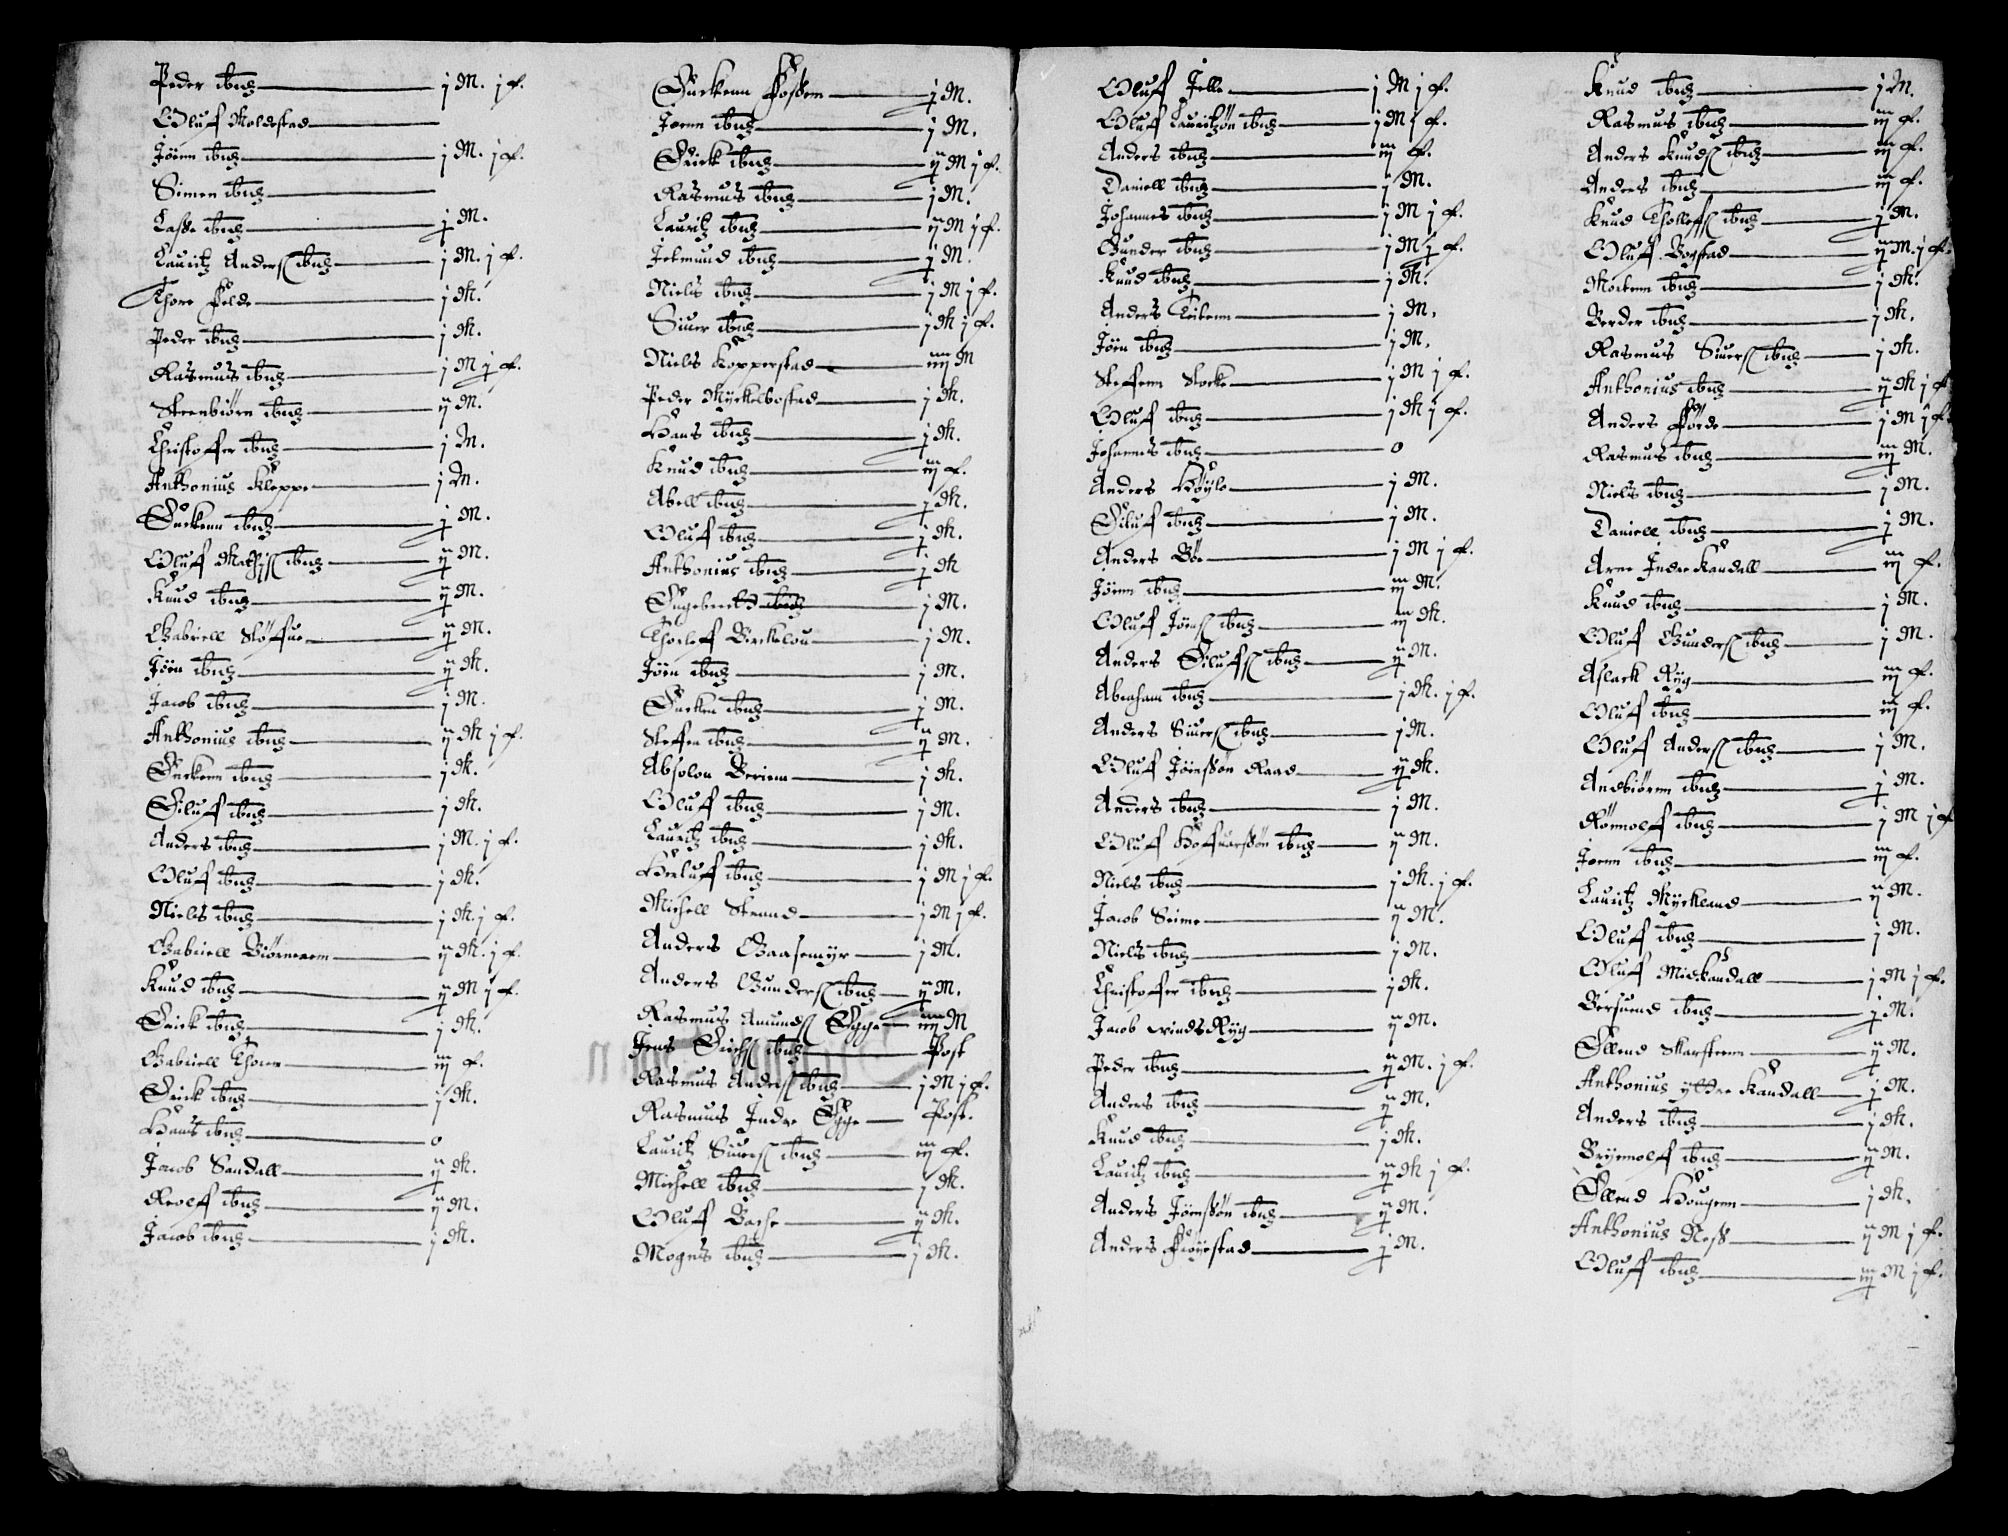 Peder ibid j M. j f.
Oluff Moldestad
Jören ibid j M. j f.
Simen ibid
Lasse ibid j M.
Lauritz Anders ibid j M. j f.
Thore Felde j M.
Peder ibid j M.
Rasmus ibid j M j f.
Steenbiörn ibid ij M.
Christoffer ibid j M.
Anthonius Kleppe j M.
Guttorm ibid j M.
Oluff Mathis ibid ij M.
Knud ibid ij M.
Gabriell Stöffue ij M.
Jöen ibid ij M.
Jacob ibid j M.
Anthonius ibid ij M j f.
ibid j M.
Eiluff ibid j M.
Anders ibid j M. j f.
Oluff ibid j M.
Niels ibid j M. j f.
Gabriell Biörnereem ij M. j f.
Knud ibid ij M j f.
Erick ibid j M.
Gabriell iij f.
Erick ibid j M.
Hans ibid o
Jacob Sandall ij M.
Reolff ibid ij M.
Jacob ibid j M.
Fossem j M.
Joenn ibid j M.
Erick ibid ij M j f.
Rasmus ibid j M.
Lauritz ibid ij M j f.
Jetmund ibid j M.
Niels ibid j M j f.
Siuer ibid j M j f.
Niels Kopperstad iiij M
Peder Myckelbostad j M.
Hans ibid j M.
Knud ibid iij f.
Abell ibid j M.
Oluff ibid j M.
Anthonius ibid j M
Engebrecht ibid j M.
Thorleff Birckelou j M.
Jöen ibid j M.
ibid j M.
Steffen ibid ij M.
Absolon Beriem j M.
Oluff ibid j M.
Lauritz ibid j M.
Herluff ibid j M j f.
Michell Strand j M j f.
Anders Gaasemyr j M.
Anders Gunders ibid ij M.
Rasmus Amunds Egge iiij M
Jens Erichs ibid Post
Rasmus Anders ibid j M j f.
Rasmus Indre Egge Post.
Lauritz Siuers ibid iij f.
Michell ibid j M.
Oluff ij M.
Mogens ibid j M.
Oluff Jelle j M j f.
Oluff Lauritzön ibid j M j f.
Anders ibid iij f.
Daniell ibid j M.
Johannes ibid j M j f.
Gunder ibid j M j f.
Knud ibid j M.
Anders j M.
Jöen ibid j M.
Steffenn Stocke j M j f.
Oluff ibid j M j f.
Johannes ibid o
Anders Höyle j M.
Eiluff ibid j M.
Anders Böe j M j f.
Jöenn ibid iij M.
Oluff Jöens ibid iij M.
Anders Eiluffs ibid ij M.
Abraham ibid j M. j f.
Anders Siuers ibid j M.
Oluff Jöenssön Raad ij M.
Anders ibid j M.
Oluff Hoffuarssön ibid ij M.
Niels ibid j M. j f.
Jacob Seime ij M.
Niels ibid j M.
Christoffer ibid j M.
Jacob ij M.
Peder ibid ij M. j f.
Anders ibid ij M.
Knud ibid j M.
Lauritz ibid ij M j f.
Anders Jöenssön ibid ij M.
Anders Flöyestad j M.
Knud ibid j M.
Rasmus ibid iij f.
Anders Knuds ibid iij f.
Anders ibid iij f.
Knud Tholleffs ibid j M.
Oluff Bogstad ij M. j f.
Mortenn ibid j M.
Berder ibid j M.
Rasmus Siuers ibid j M.
Anthonius ibid ij M j f
Anders Förde j M j f.
Rasmus ibid iij M.
Niels ibid j M.
Daniell ibid j M.
Arne Indre Kandall iij f.
Knud ibid j M.
Oluff Gunders ibid j M.
Aslack Ryg iij f.
Oluff ibid iij f.
Oluff Anders ibid j M.
Andbiörnn ibid j M.
Römolff ibid j M j f
Joenn ibid iij f.
Lauritz Myckland ij M.
Oluff ibid j M.
Oluff Midkandall j M j f.
Bersuend ibid j M.
Ellend Skarsteenn ij M.
Anthonius ytdre Kandall j M.
Anders ibid j M.
Brynnolff ibid ij M.
Ellend Hougenn j M.
Anthonius Ness ij M j f.
Oluff ibid iij M j f.